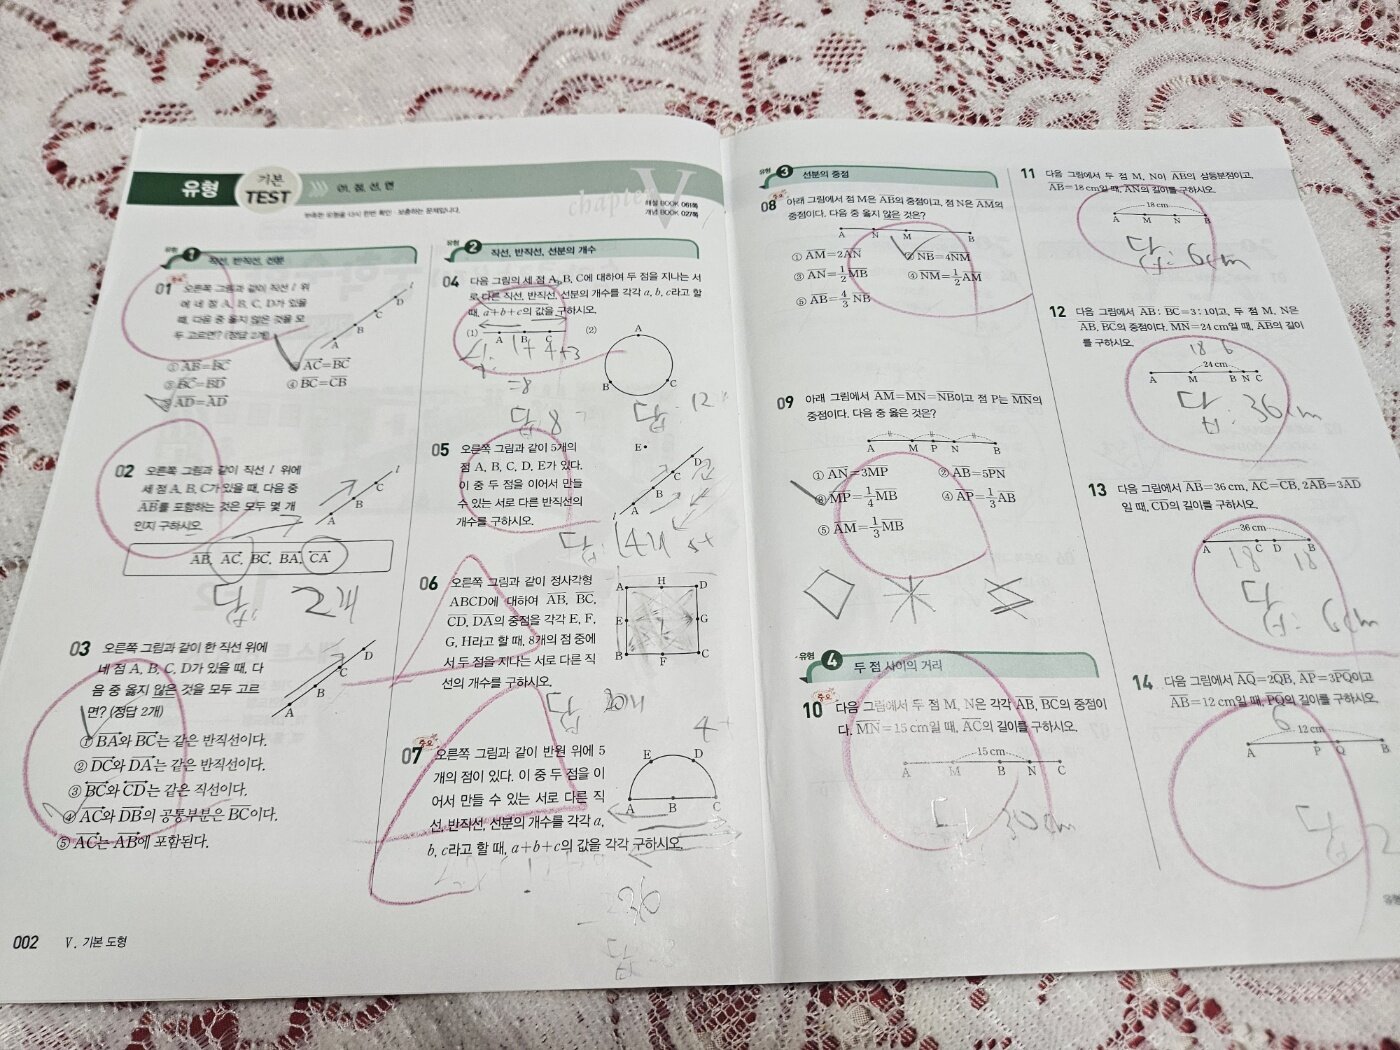 유형 기본 TEST 01. 점, 선, 면
부족한 유형을 다시 한번 확인 · 보충하는 문제입니다.
chapter V
해설 BOOK 061쪽
개념 BOOK 027쪽
유형 1 직선, 반직선, 선분
01 오른쪽 그림과 같이 직선 l 위
에 네 점 A, B, C, D가 있을
때, 다음 중 옳지 않은 것을 모
두 고르면? (정답 2개)
l
D
C
B
A
① AB=BC ② AC=BC
③ BC=BD ④ BC=CB
⑤ AD=AD
02 오른쪽 그림과 같이 직선 l 위에
세 점 A, B, C가 있을 때, 다음 중
AB를 포함하는 것은 모두 몇 개
인지 구하시오.
l
C
B
A
AB, AC, BC, BA, CA
답: 2개
03 오른쪽 그림과 같이 한 직선 위에
네 점 A, B, C, D가 있을 때, 다
음 중 옳지 않은 것을 모두 고르
면? (정답 2개)
D
C
B
A
① BA와 BC는 같은 반직선이다.
② DC와 DA는 같은 반직선이다.
③ BC와 CD는 같은 직선이다.
④ AC와 DB의 공통부분은 BC이다.
⑤ AC는 AB에 포함된다.
002 V. 기본 도형
유형 2 직선, 반직선, 선분의 개수
04 다음 그림의 세 점 A, B, C에 대하여 두 점을 지나는 서
로 다른 직선, 반직선, 선분의 개수를 각각 a, b, c라고 할
때, a+b+c의 값을 구하시오.
(1) A B C (2) A B C
1+4+3
=8
답 8 답: 12
05 오른쪽 그림과 같이 5개의
점 A, B, C, D, E가 있다.
이 중 두 점을 이어서 만들
수 있는 서로 다른 반직선의
개수를 구하시오.
E
D
C
B
A
l
답: 14개
06 오른쪽 그림과 같이 정사각형
ABCD에 대하여 AB, BC,
CD, DA의 중점을 각각 E, F,
G, H라고 할 때, 8개의 점 중에
서 두 점을 지나는 서로 다른 직
선의 개수를 구하시오.
A H D
E G
B F C
답 20개
07 중요 오른쪽 그림과 같이 반원 위에 5
개의 점이 있다. 이 중 두 점을 이
어서 만들 수 있는 서로 다른 직
선, 반직선, 선분의 개수를 각각 a,
b, c라고 할 때, a+b+c의 값을 각각 구하시오.
E D
A B C
답
유형 3 선분의 중점
08 중요 아래 그림에서 점 M은 AB의 중점이고, 점 N은 AM의
중점이다. 다음 중 옳지 않은 것은?
A N M B
① AM=2AN ② NB=4NM
③ AN=1/2MB ④ NM=1/2AM
⑤ AB=4/3NB
09 아래 그림에서 AM=MN=NB이고 점 P는 MN의
중점이다. 다음 중 옳은 것은?
A M P N B
① AN=3MP ② AB=5PN
③ MP=1/4MB ④ AP=1/3AB
⑤ AM=1/3MB
유형 4 두 점 사이의 거리
10 중요 다음 그림에서 두 점 M, N은 각각 AB, BC의 중점이
다. MN=15 cm일 때, AC의 길이를 구하시오.
15 cm
A M B N C
30cm
11 다음 그림에서 두 점 M, N이 AB의 삼등분점이고,
AB=18 cm일 때, AN의 길이를 구하시오.
18 cm
A M N B
답: 6cm
12 다음 그림에서 AB : BC=3 : 1이고, 두 점 M, N은
AB, BC의 중점이다. MN=24 cm일 때, AB의 길이
를 구하시오.
18 6
24 cm
A M B N C
답: 36cm
13 다음 그림에서 AB=36 cm, AC=CB, 2AB=3AD
일 때, CD의 길이를 구하시오.
36 cm
A C D B
18 18
답: 6cm
14 다음 그림에서 AQ=2QB, AP=3PQ이고
AB=12 cm일 때, PQ의 길이를 구하시오.
6
12 cm
A P Q B
답 2